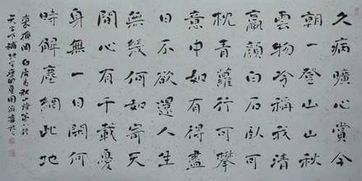 久病曠心賞今
朝一登山山秋
雲物冷稱我清
羸顏白石臥可
枕青蘿行可攀
意中如有得盡
日不欲還人生
無幾何如寄天
間心有千載憂
身無一日閒何
時解塵網此地
來掩關 白居易秋山